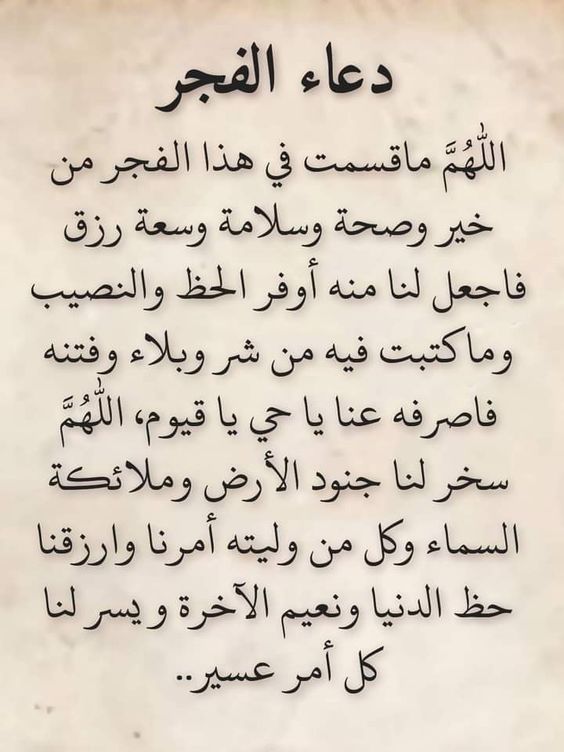 دعاء الفجر
اللّٰهُمَّ ماقسمت في هذا الفجر من
خير وصحة وسلامة وسعة رزق
فاجعل لنا منه أوفر الحظ والنصيب
وماكتبت فيه من شر وبلاء وفتنه
فاصرفه عنا يا حي يا قيوم، اللّٰهُمَّ
سخر لنا جنود الأرض وملائكة
السماء وكل من وليته أمرنا وارزقنا
حظ الدنيا ونعيم الآخرة و يسر لنا
كل أمر عسير..